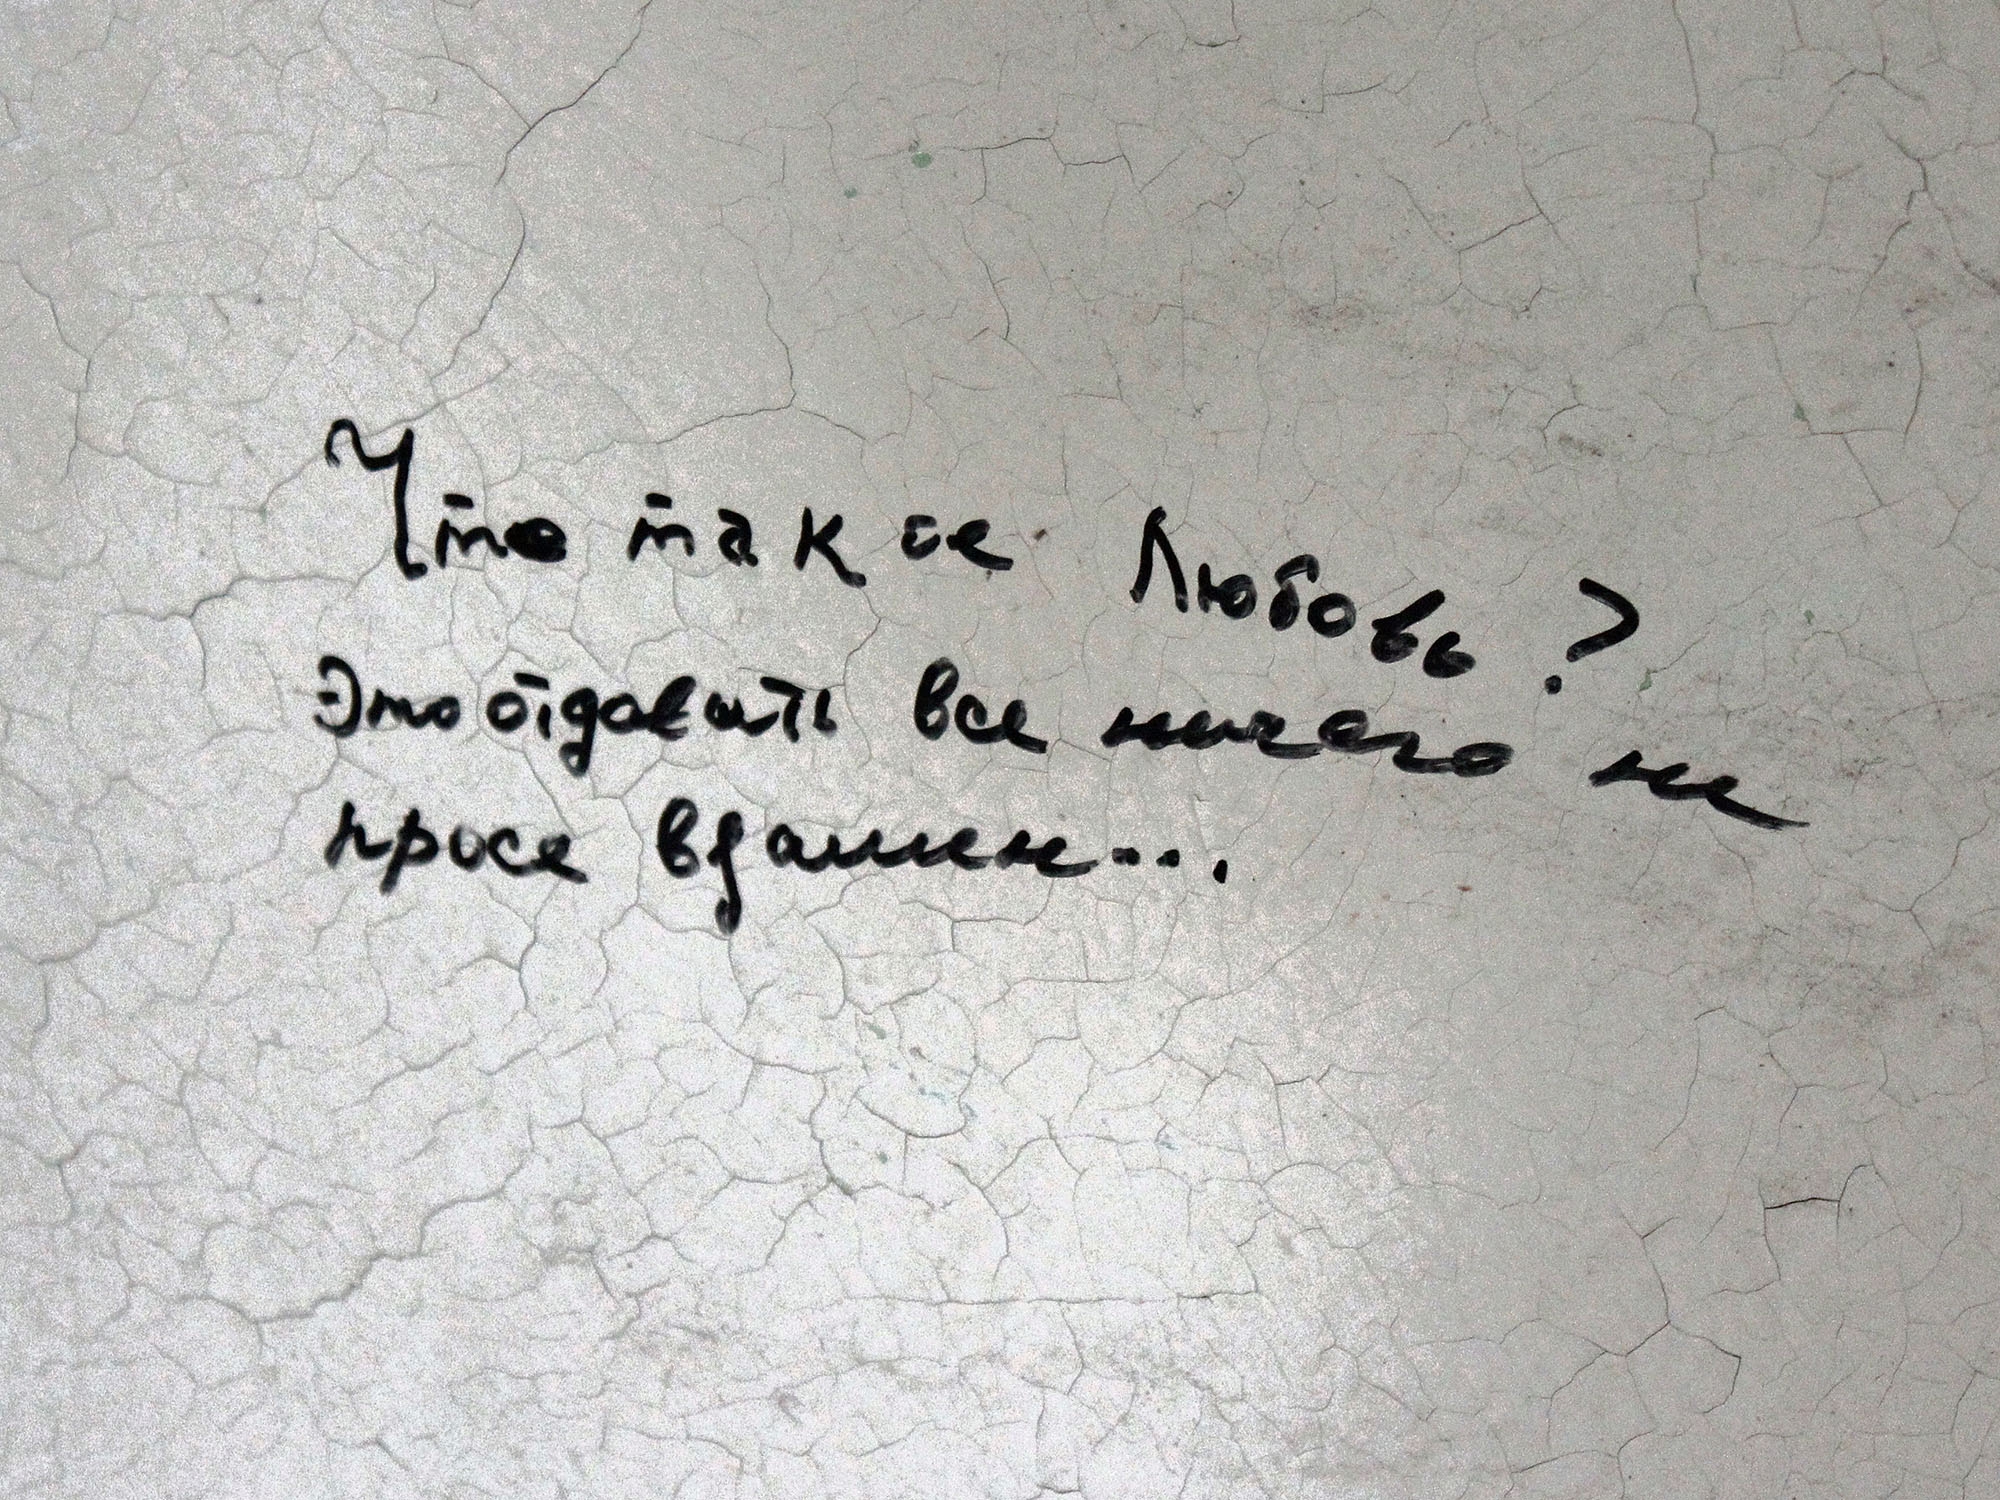 Что такое Любовь?
Это отдавать все ничего не
прося взамен...